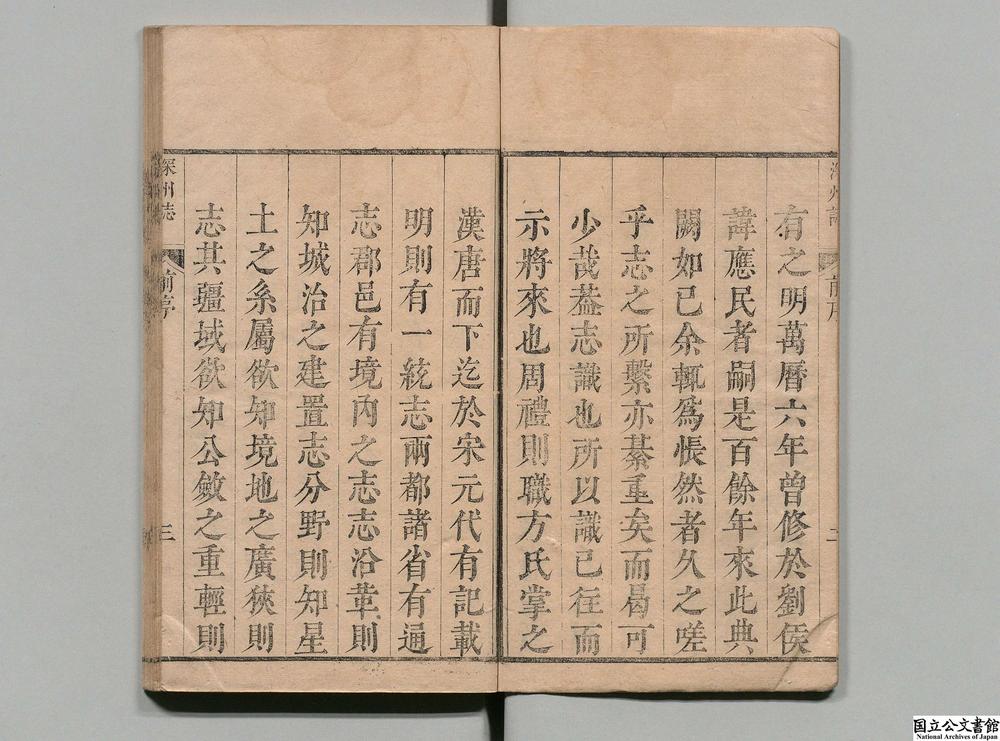 深州志
前序
二
有之明萬曆六年曾修於劉侯
諱應民者嗣是百餘年來此典
闕如已余輒爲悵然者久之嗟
乎志之所繫亦綦重矣而曷可
少哉蓋志識也所以識已往而
示將來也周禮則職方氏掌之
漢唐而下迄於宋元代有記載
明則有一統志兩都諸省有通
志郡邑有境內之志志沿革則
知城治之建置志分野則知星
土之系屬欲知境地之廣狹則
志其疆域欲知公斂之重輕則
深州志
前序
三
国立公文書館
National Archives of Japan